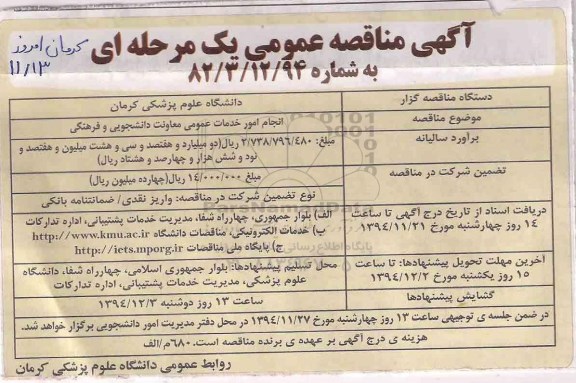 آگهی مناقصه عمومی یک مرحله ای
به شماره ۸۲/۳/۱۲/۹۴
کرمان امروز
۱۱/۱۳
دستگاه مناقصه گزار
دانشگاه علوم پزشکی کرمان
موضوع مناقصه
انجام امور خدمات عمومی معاونت دانشجویی و فرهنگی
برآورد سالیانه
مبلغ: ۲/۷۳۸/۷۹۶/۴۸۰ ریال(دو میلیارد و هفتصد و سی و هشت میلیون و هفتصد و
نود و شش هزار و چهارصد و هشتاد ریال)
تضمین شرکت در مناقصه
مبلغ ۱۴/۰۰۰/۰۰۰ ریال(چهارده میلیون ریال)
نوع تضمین شرکت در مناقصه: واریز نقدی/ ضمانتنامه بانکی
دریافت اسناد از تاریخ درج آگهی تا ساعت
۱۴ روز چهارشنبه مورخ ۱۳۹۴/۱۱/۲۱
الف) بلوار جمهوری، چهارراه شفا، مدیریت خدمات پشتیبانی، اداره تدارکات
ب) خدمات الکترونیکی، مناقصات دانشگاه http://www.kmu.ac.ir
ج) پایگاه ملی مناقصات http://iets.mporg.ir
آخرین مهلت تحویل پیشنهادها: تا ساعت
۱۵ روز یکشنبه مورخ ۱۳۹۴/۱۲/۲
محل تسلیم پیشنهادها: بلوار جمهوری اسلامی، چهارراه شفا، دانشگاه
علوم پزشکی، مدیریت خدمات پشتیبانی، اداره تدارکات
گشایش پیشنهادها
ساعت ۱۳ روز دوشنبه ۱۳۹۴/۱۲/۳
در ضمن جلسه ی توجیهی ساعت ۱۳ روز چهارشنبه مورخ ۱۳۹۴/۱۱/۲۷ در محل دفتر مدیریت امور دانشجویی برگزار خواهد شد.
هزینه ی درج آگهی بر عهده ی برنده مناقصه است. ۶۸۰م/الف
روابط عمومی دانشگاه علوم پزشکی کرمان